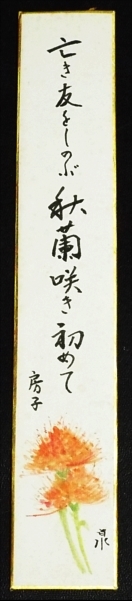 亡き友をしのぶ秋蘭咲き初めて
房子
泉